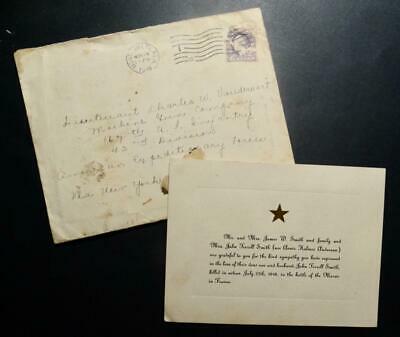 Lieutenant Charles W. Vandersart
Machine Gun Company
167th U.S. Infantry
42nd Division
American Expeditionary Forces
Via New York
Mr. and Mrs. James W. Smith and family and
Mrs. John Ferrell Smith (nee Annie Holmes Anderson)
are grateful to you for the kind sympathy you have expressed
in the loss of their dear son and husband John Ferrell Smith,
killed in action July 27th, 1918, in the battle of the Marne
in France.